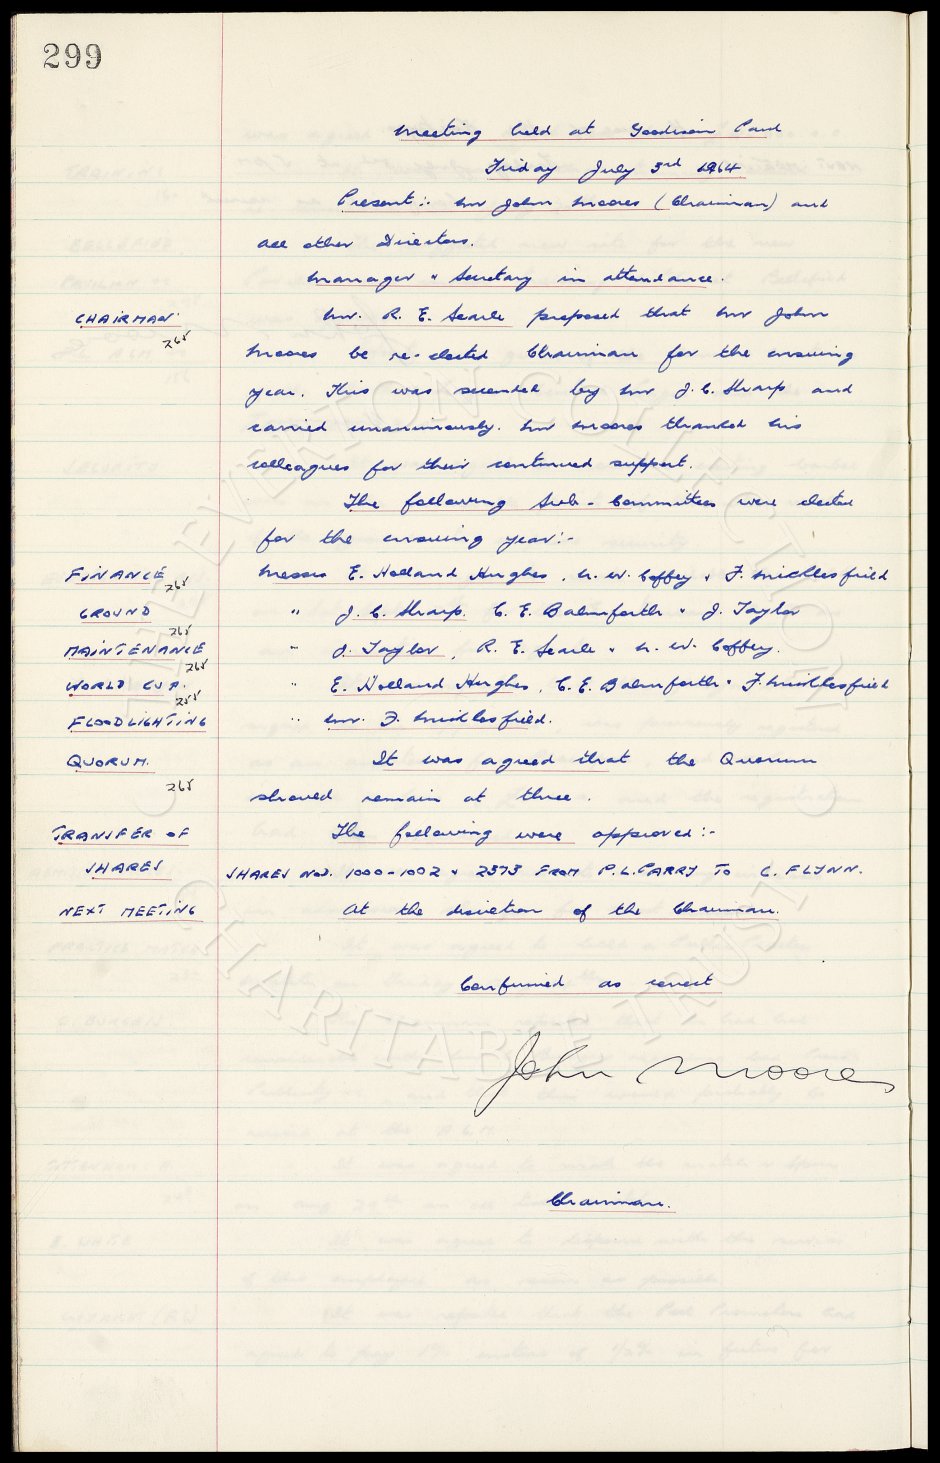 299
Meeting held at Goodison Park
Friday July 3rd 1964
Present:- Mr John Moores (Chairman) and
all other Directors.
Manager & Secretary in attendance.
CHAIRMAN Mr. R. E. Searle proposed that Mr John
265
Moores be re-elected Chairman for the ensuing
year. This was seconded by Mr J. C. Sharp and
carried unanimously. Mr Moores thanked his
colleagues for their continued support.
The following Sub-Committees were elected
for the ensuing year:-
FINANCE Messrs E. Holland Hughes, N. W. Coffey & F. Micklesfield
265
GROUND " J. C. Sharp. C. E. Balmforth & J. Taylor
265
MAINTENANCE " J. Taylor, R. E. Searle & N. W. Coffey.
265
WORLD CUP. " E. Holland Hughes, C. E. Balmforth & F. Micklesfield
255
FLOODLIGHTING " Mr. F. Micklesfield.
QUORUM. It was agreed that the Quorum
265
should remain at three.
TRANSFER OF The following were approved:-
SHARES SHARES NOS. 1000-1002 & 2373 FROM P.L. PARRY TO C. FLYNN.
NEXT MEETING At the discretion of the Chairman.
Confirmed as correct
John Moores
Chairman.
THE EVERTON COLLECTION
CHARITABLE TRUST